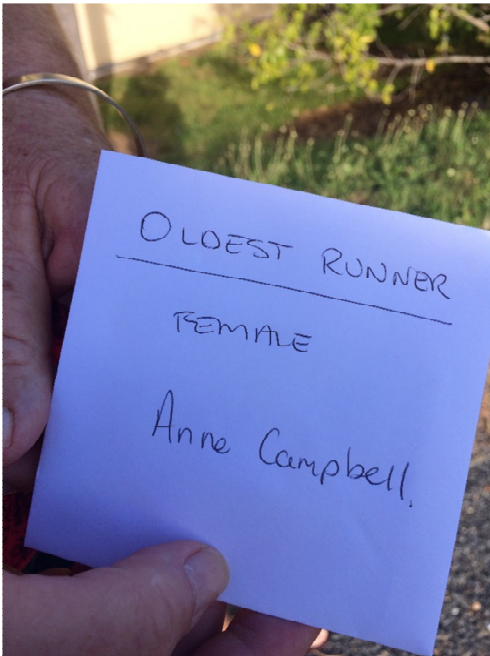 OLDEST RUNNER
FEMALE
Anne Campbell.